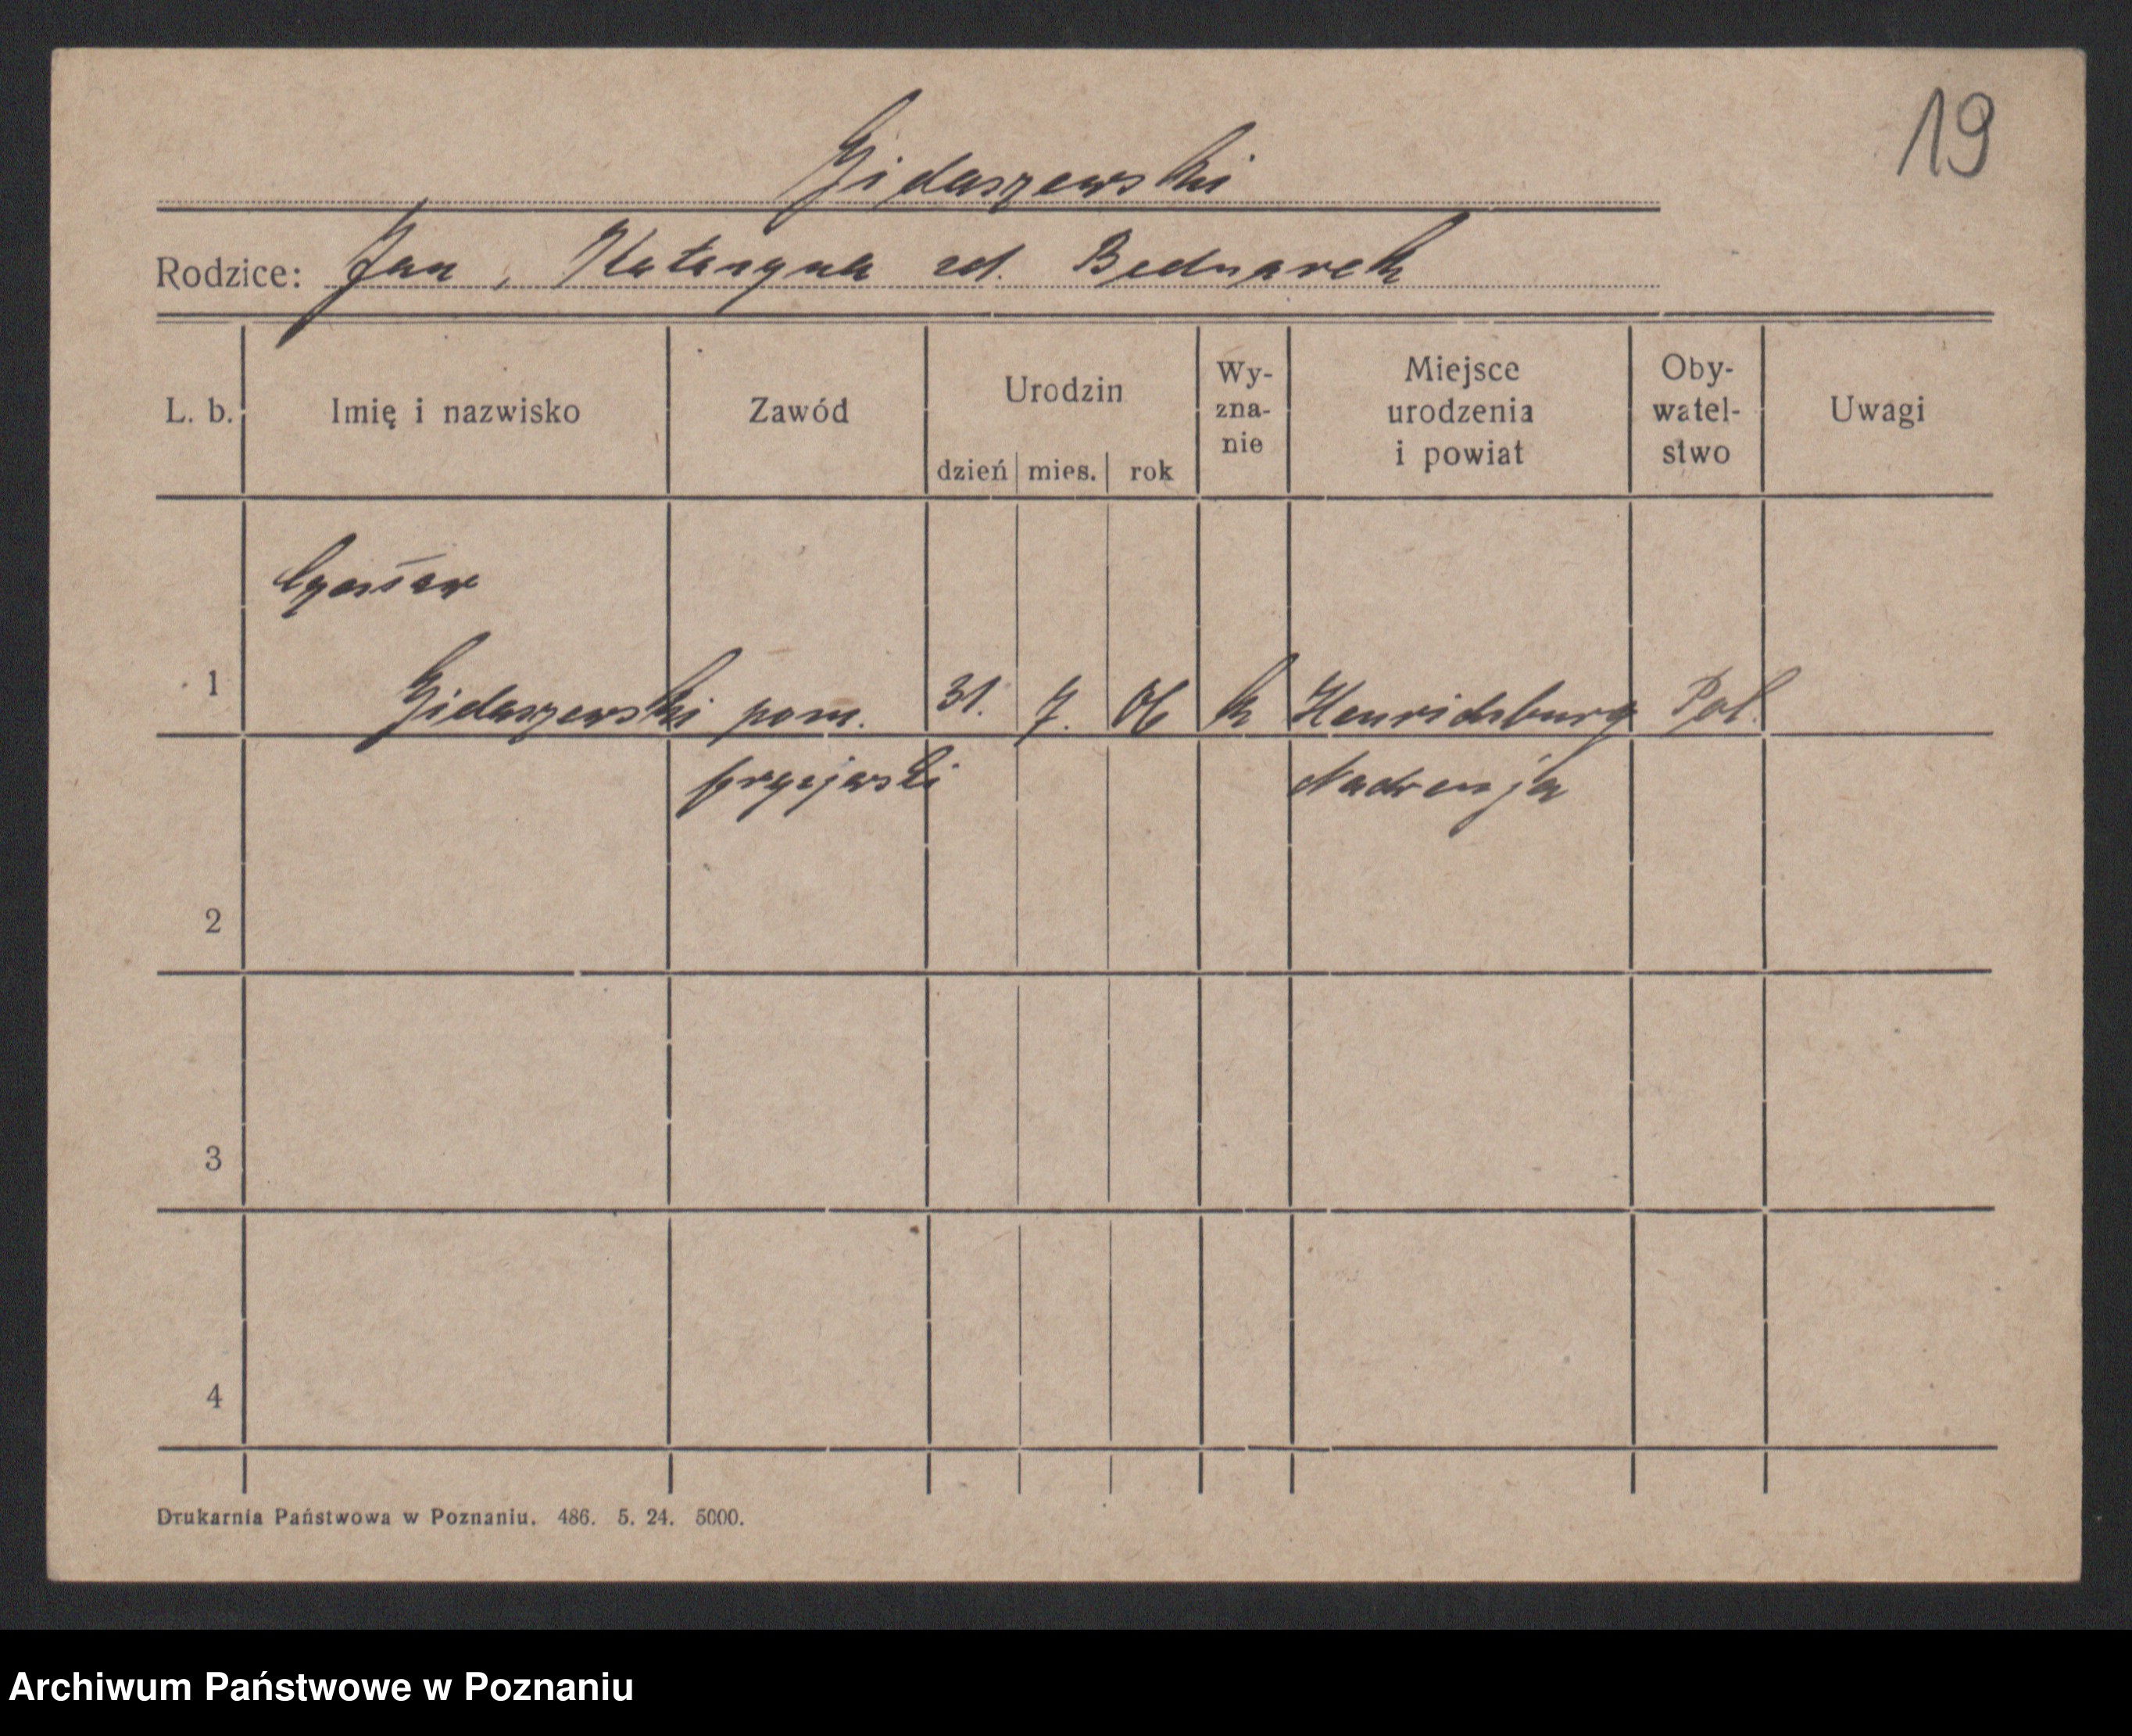 19
Gidaszewski
Rodzice: Jan, Katarzyna zd. Bednarek
L. b. Imię i nazwisko Zawód Urodzin dzień mies. rok Wy-zna-nie Miejsce urodzenia i powiat Oby-watel-stwo Uwagi
Czesław
1 Gidaszewski pom. 31. 7. 06 k Henrichsburg Pol.
fryzjerski
2
3
4
Drukarnia Państwowa w Poznaniu. 486. 5. 24. 5000.
Archiwum Państwowe w Poznaniu